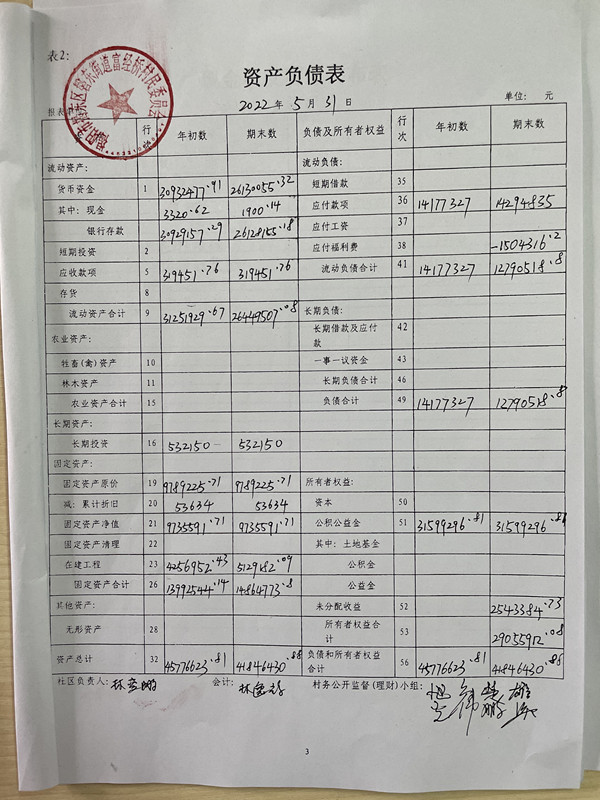 表2:
资产负债表
2022年 5月 31日 单位: 元
行 年初数 期末数 负债及所有者权益 行次 年初数 期末数
流动资产: 流动负债:
货币资金 1 30932477.91 26130055.32 短期借款 35
其中: 现金 3320.62 1900.14 应付款项 36 14177327 14294835
银行存款 30929157.29 26128155.18 应付工资 37
短期投资 2 应付福利费 38 -1504316.2
应收款项 5 319451.76 319451.76 流动负债合计 41 14177327 12790518.8
存货 8
流动资产合计 9 31251929.67 26449507.08 长期负债:
农业资产: 长期借款及应付款 42
牲畜(禽)资产 10 一事一议资金 43
林木资产 11 长期负债合计 46
农业资产合计 15 负债合计 49 14177327 12790518.8
长期资产:
长期投资 16 532150 532150
固定资产:
固定资产原价 19 9789225.71 9789225.71 所有者权益:
减: 累计折旧 20 53634 53634 资本 50
固定资产净值 21 9735591.71 9735591.71 公积公益金 51 31599296.81 31599296.81
固定资产清理 22 其中: 土地基金
在建工程 23 4256952.43 5129182.09 公积金
固定资产合计 26 13992544.14 14864773.8 公益金
其他资产: 未分配收益 52 2543384.73
无形资产 28 所有者权益合计 53 29055912.08
资产总计 32 45776623.81 41846430.88 负债和所有者权益合计 56 45776623.81 41846430.88
社区负责人: 会计: 村务公开监督(理财)小组:
3